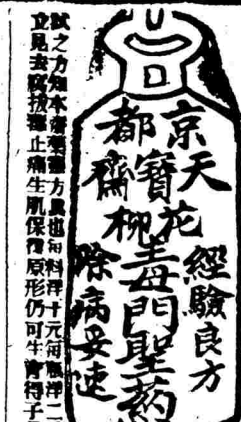 京都
天寶齋
花柳
毒門聖药
經驗良方
除病妥速
試之方知本齋藥靈方異也每料洋十元每瓶洋二
立見去腐拔毒止痛生肌保復原形仍可生育得子